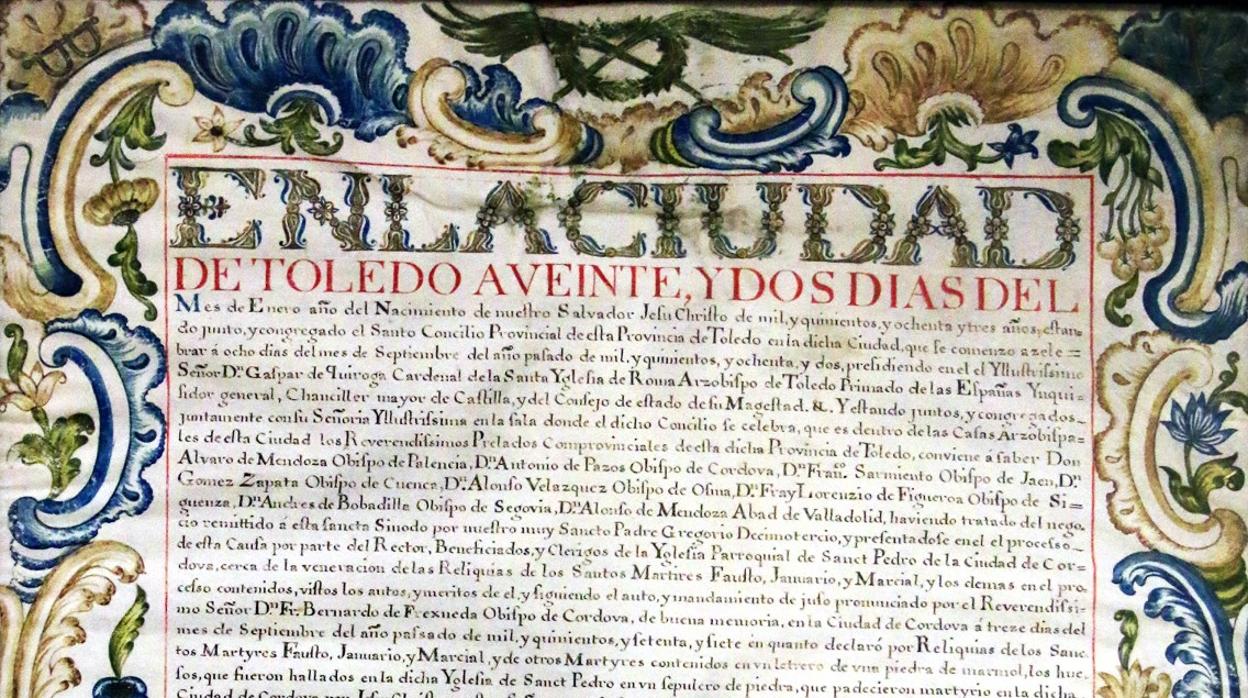 EN LA CIUDAD
DE TOLEDO A VEINTE, Y DOS DIAS DEL
Mes de Enero año del Nacimiento de nuestro Salvador Jesu Christo de mil, y quinientos, y ochenta y tres años, estan-
do junto, y congregado el Santo Concilio Provincial de esta Provincia de Toledo en la dicha Ciudad, que se comenzo a zele=
brar á ocho dias del mes de Septiembre del año pasado de mil, y quinientos, y ochenta, y dos, presidiendo en el el Yllustrissimo
Señor Dn. Gaspar de Quiroga Cardenal de la Santa Yglesia de Roma Arzobispo de Toledo Primado de las Españas Ynqui=
sidor general, Chanciller mayor de Castilla, y del Consejo de estado de su Magestad. &. Y estando juntos, y congregados
juntamente con su Señoria Yllustrissima en la sala donde el dicho Concilio se celebra, que es dentro de las Casas Arzobispa=
les de esta Ciudad los Reverendissimos Prelados Comprovinciales de esta dicha Provincia de Toledo, conviene á saber Don
Alvaro de Mendoza Obispo de Palencia, Dn. Antonio de Pazos Obispo de Cordova, Dn. Fran.co Sarmiento Obispo de Jaen, Dn.
Gomez Zapata Obispo de Cuenca, Dn. Alonso Velazquez Obispo de Osma, Dn. Fray Lorenzio de Figueroa Obispo de Si=
guenza, Dn. Andres de Bobadilla Obispo de Segovia, Dn. Alonso de Mendoza Abad de Valladolid, haviendo tratado del nego
cio remittido á esta sancta Sinodo por nuestro muy Sancto Padre Gregorio Decimotercio, y presentadose en el el processo
de esta Causa por parte del Rector, Beneficiados, y Clerigos de la Yglesia Parroquial de Sanct Pedro de la Ciudad de Cor=
dova, cerca de la veneracion de las Reliquias de los Santos Martires Fausto, Januario, y Marcial, y los demas en el pro
cesso contenidos, vistos los autos, y meritos de el, y siguiendo el auto, y mandamiento de juso pronunciado por el Reverendissi=
mo Señor Dn. Fr. Bernardo de Frexneda Obispo de Cordova, de buena memoria, en la Ciudad de Cordova á treze dias del
mes de Septiembre del año passado de mil, y quinientos, y setenta, y siete en quanto declaró por Reliquias de los Sanc=
tos Martyres Fausto, Januario, y Marcial, y de otros Martyres contenidos en vn letrero de vna piedra de marmol, los hue=
sos, que fueron hallados en la dicha Yglesia de Sanct Pedro en vn sepulcro de piedra, que padecieron martyrio en la dicha
Ciudad de Cordova por